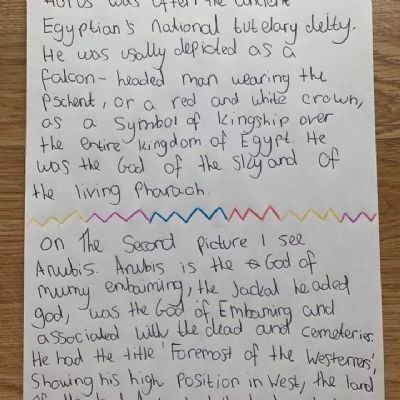 Horus was often the ancient
Egyptian's national tutelary deity.
He was usally depicted as a
falcon-headed man wearing the
Pschent, or a red and white crown,
as a symbol of kingship over
the entire kingdom of Egypt. He
was the God of the sky and of
the living Pharaoh.
On The Second picture I see
Anubis. Anubis is the God of
mumy embaiming, the Jackal headed
god, was the God of Embaming and
associated with the dead and cemeteries.
He had the title 'Foremost of the Westerners',
Showing his high position in West, the land
of the